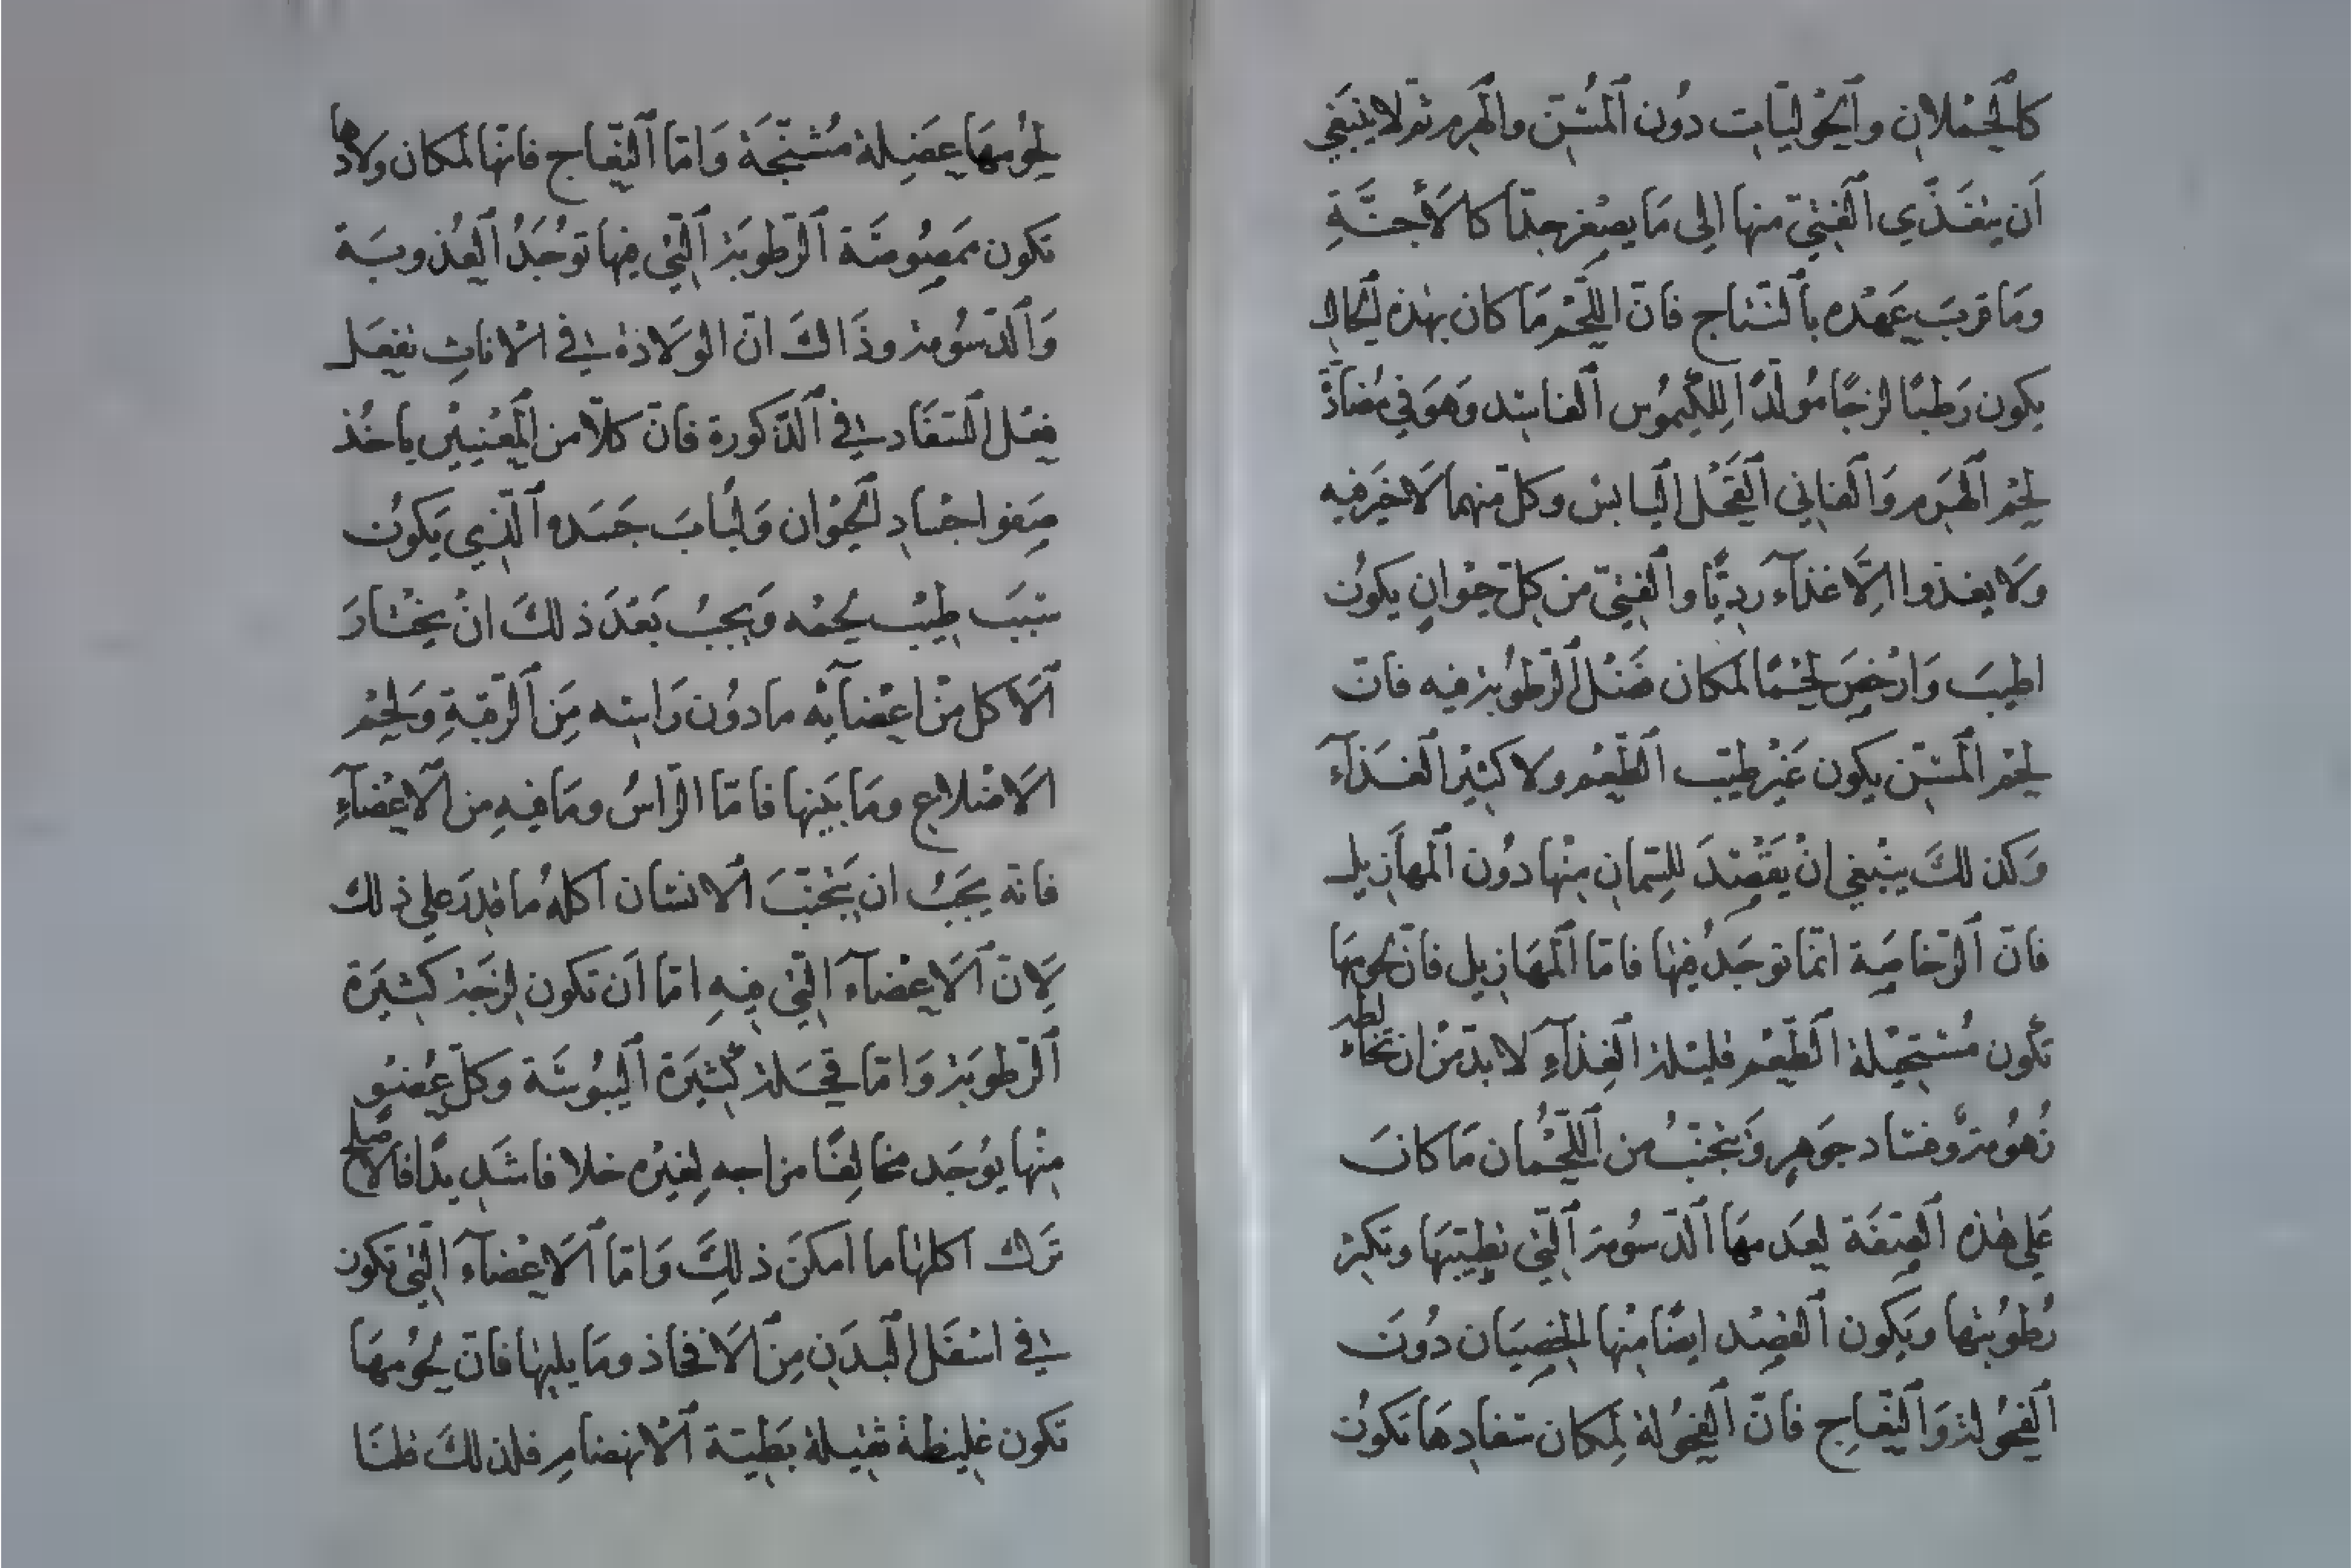 كالحملان والحوليّات دون المُسِنّ والهرم ثم لا ينبَغي
اَن يتغَذّي الفتيّ منها الِى مَا يصغر جدّا كالأجنَّةِ
ومَا قربَ عَهْده بالنَتاج فانّ اللّحْم مَا كان بهذه الحال
يكون رَطبًا لزجًا مُولّدًا لِلكَيمُوس الفاسد وَهوَ في مُضادّة
لحْم الهَرم وَالفاني القَحْل اليابس وكلّ منهما لا خيَر فيه
ولا يغذوا الاّ غذآء رديًّا والفتيّ من كلّ حيوانٍ يكوُن
اطيبَ وَارْخصَ لحْمًا لمكان فضْل الرّطوُبة فيه فانّ
لحْم المُسِنّ يكون غَيْر طيّب الطّعْم ولا كثيْر الغذآء
وَكذلكَ ينْبغي انْ يقَصْدَ للِسّمان منْها دوُن المهازيل
فانّ الرّخاصَة انّما توجَدُ فيْها فامّا المَهازيل فانّ لحُومهَا
تكُون مُسْتحيْلة الطّعْم قليْلة الغِذآءِ لا بدّ مْن ان تخالطه
زُهوُمةٌ وفسَاد جوَهرٍ وَتجْتنبُ من اللّحْمان مَا كانَ
عَلي هٰذه الصّفَة لعَدمهَا الدّسوُمَة الّتي تطيّبهَا وتكثر
رُطوُبتها ويَكون القصْد ايضًا منْها الخصيَان دوُنَ
الفحُولة وَالنّعاج فانّ الفحُولة لِمكان سفادِهَا تكوُن
لحُومهَا عَضِلة مُتشنّجَة وَامّا النّعاج فانّها لمكان ولادها
تكون ممصوُصَة الرّطوبَة الّتي فيها توُجَدُ العُذوبَة
وَالدّسوُمة وذَاكَ انّ الوَلادة في الاناثِ تفعَل
فِعْل السّفَاد في الذّكورة فانّ كلاّ من المعْنييْن ياخُذ
صَفو اجسَادِ الحيْوان وَلبُابَ جَسَده الّذي يَكوُن
سَبَبَ طِيْب لحمْه وَيجبُ بَعْدَ ذلكَ انْ يخْتارَ
الاَكل مْن اعْضآئه ما دوُن رَاسه مَن الرّقبةِ وَلحْم
الاَضْلاع ومَا بَيْنها فامّا الرّاسُ ومَا فيهِ من الاَعْضآءِ
فانّه يجَبُ ان يَجْتنبَ الانسَان اكلهُ ما قدرَ علي ذلك
لاِنّ الاَعْضآءَ الّتي فيهِ امّا اَن تكون لزجَة كثيَرة
الرّطوبَة وَامّا قحَلة كثيَرة اليبوُسَة وكلّ عُضوٍ
منْها يوُجَد مخالِفًا مزاجه لِغيرْه خلافا شَديدًا فالاصْلح
تَرك اكلهَا ما امكنَ ذلِكَ وَامّا الاَعْضآءَ الّتي تكون
في اسْفَل البَدَن مِن الاَفخاذ ومَا يليْها فانّ لحُومهَا
تكون غليظة ثقيلة بَطيّة الاْنهضامِ فلذلكَ قلنَا